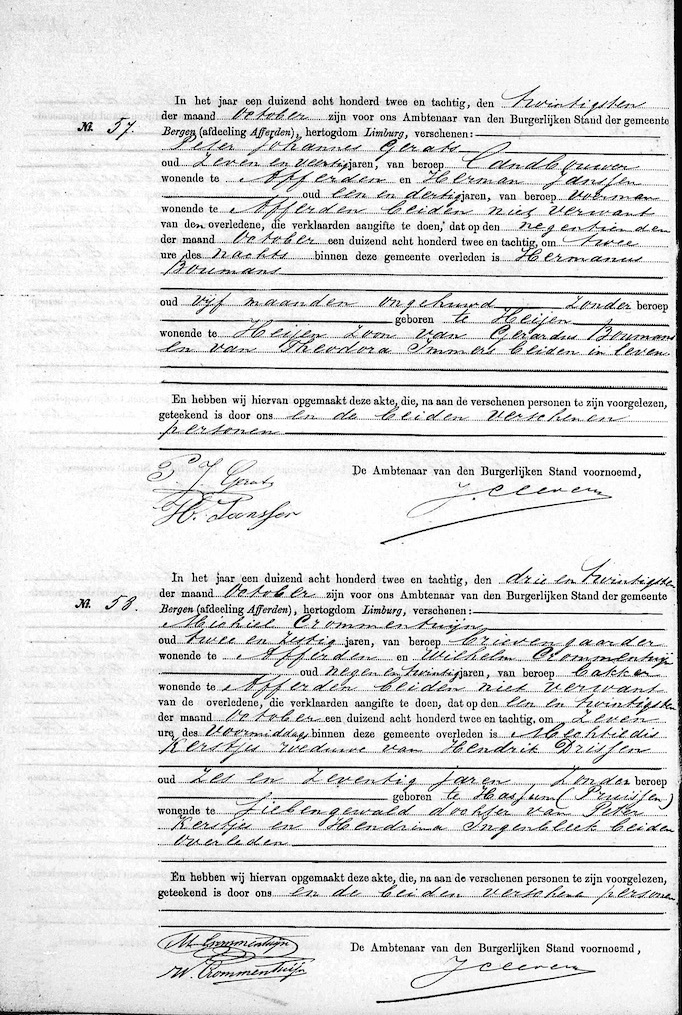 In het jaar een duizend acht honderd twee en tachtig, den twintigsten
der maand October zijn voor ons Ambtenaar van den Burgerlijken Stand der gemeente
N. 57. Bergen (afdeeling Afferden), hertogdom Limburg, verschenen:
Peter Johannes Gerats
oud Zeven en veertig jaren, van beroep Landbouwer
wonende te Afferden en Herman Janssen
oud een en dertig jaren, van beroep voerman
wonende te Afferden beiden niet verwant
van den overledene, die verklaarden aangifte te doen, dat op den negentienden
der maand October een duizend acht honderd twee en tachtig, om twee
ure des nachts binnen deze gemeente overleden is Hermanus
Boumans
oud vyf maanden ongehuwd Zonder beroep
geboren te Heijen
wonende te Heijen Zoon van Gerardus Boumans
en van Theodora Immers beiden in leven
En hebben wij hiervan opgemaakt deze akte, die, na aan de verschenen personen te zijn voorgelezen,
geteekend is door ons en de beiden verschenen
personen
De Ambtenaar van den Burgerlijken Stand voornoemd,
P. J. Gerats
H. Janssen
In het jaar een duizend acht honderd twee en tachtig, den drie en twintigsten
der maand October zijn voor ons Ambtenaar van den Burgerlijken Stand der gemeente
N. 58. Bergen (afdeeling Afferden), hertogdom Limburg, verschenen:
Michiel Crommentuijn
oud twee en Zestig jaren, van beroep
wonende te Afferden en Wilhelm Crommentuijn
oud negen en twintig jaren, van beroep bakker
wonende te Afferden beiden niet verwant
van de overledene, die verklaarden aangifte te doen, dat op den een en twintigsten
der maand October een duizend acht honderd twee en tachtig, om Zeven
ure des voormiddags binnen deze gemeente overleden is Mechtildis
Kerstjes weduwe van Hendrik Drissen
oud Zes en Zeventig Jaren Zonder beroep
geboren te Hassum (Pruissen)
wonende te Siebengewald dochter van Peter
Kerstjes en Hendrina Ingenbleek beiden
overleden
En hebben wij hiervan opgemaakt deze akte, die, na aan de verschenen personen te zijn voorgelezen,
geteekend is door ons en de beiden verschene personen
De Ambtenaar van den Burgerlijken Stand voornoemd,
M Crommentuijn
W. Crommentuijn